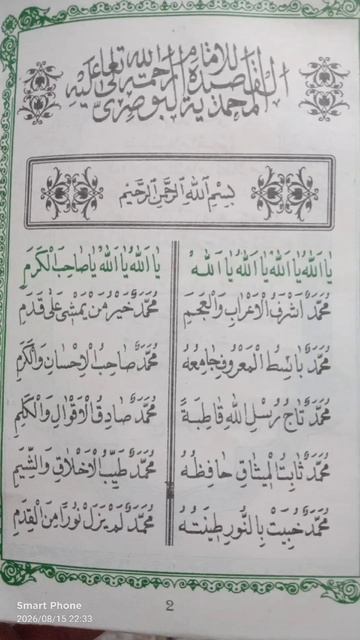 القصيدة المحمدية للإمام البوصيري رحمه الله تعالى عليه
بِسْمِ اللهِ الرَّحْمٰنِ الرَّحِيْمِ
يَا اَللهُ يَا اَللهُ يَا اَللهُ يَا اَللهُ يَا اَللهُ يَا اَللهُ يَا صَاحِبَ الْكَرَمِ
مُحَمَّدٌ اَشْرَفُ الْاَعْرَابِ وَالْعَجَمِ مُحَمَّدٌ خَيْرُ مَنْ يَمْشِىْ عَلٰى قَدَمِ
مُحَمَّدٌ بَاسِطُ الْمَعْرُوْفِ جَامِعُهُ مُحَمَّدٌ صَاحِبُ الْاِحْسَانِ وَالْكَرَمِ
مُحَمَّدٌ تَاجُ رُسْلِ اللهِ قَاطِبَةً مُحَمَّدٌ صَادِقُ الْاَقْوَالِ وَالْكَلِمِ
مُحَمَّدٌ ثَابِتُ الْمِيْثَاقِ حَافِظُهُ مُحَمَّدٌ طَيِّبُ الْاَخْلَاقِ وَالشِّيَمِ
مُحَمَّدٌ خُبِيَتْ بِالنُّوْرِ طِيْنَتُهُ مُحَمَّدٌ لَمْ يَزَلْ نُوْرًا مِنَ الْقِدَمِ
2
Smart Phone
2026/08/15 22:33